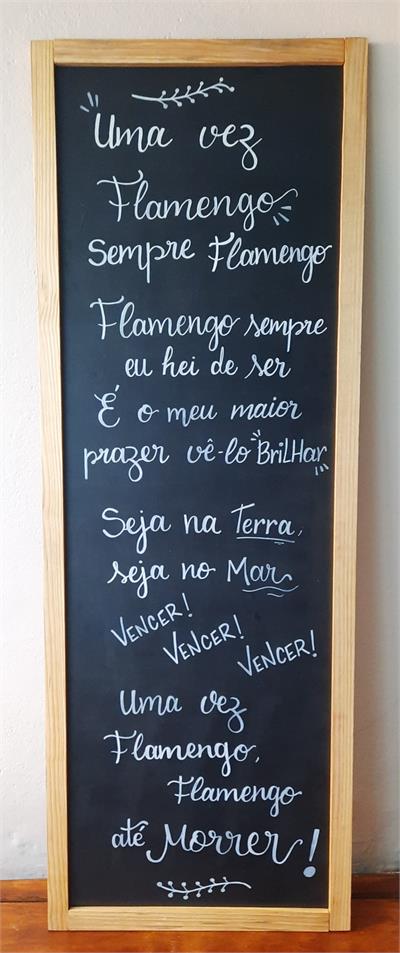 "Uma vez
Flamengo
Sempre Flamengo
Flamengo sempre
eu hei de ser
É o meu maior
prazer vê-lo "BriLHar"
Seja na Terra,
seja no Mar
VENCER!
VENCER!
VENCER!
Uma vez
Flamengo,
Flamengo
até Morrer!